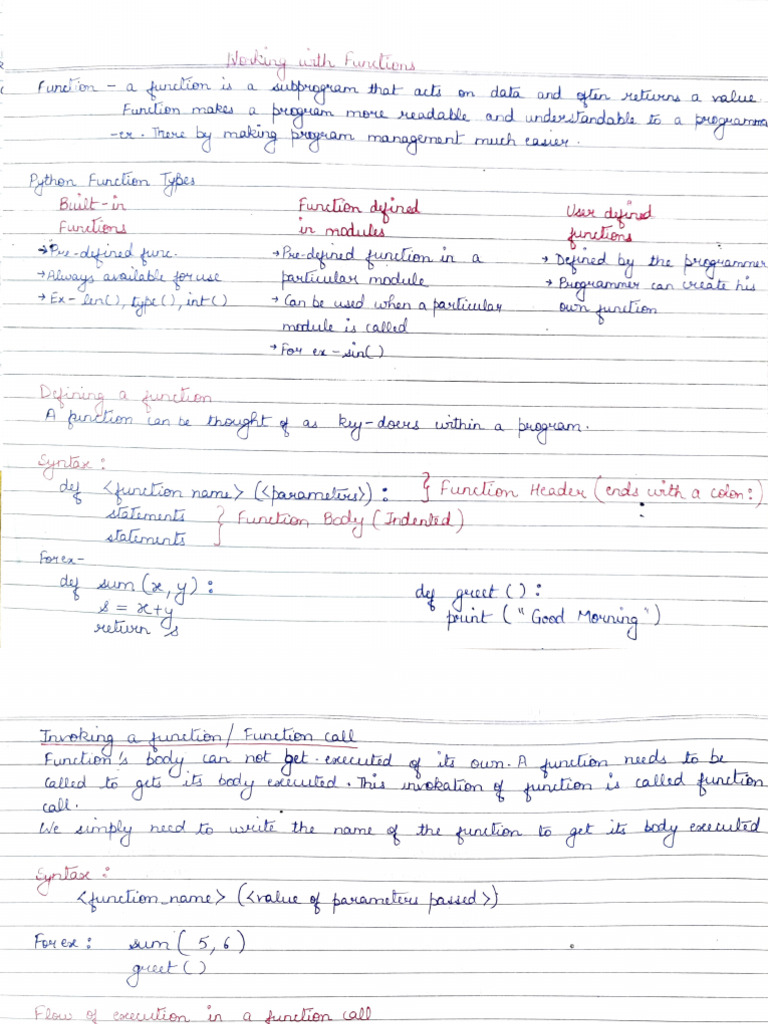 Working with Functions
Function - a function is a subprogram that acts on data and often returns a value.
Function makes a program more readable and understandable to a programm
-er. There by making program management much easier.
Python Function Types
Built-in Function defined User defined
Functions in modules functions
→ Pre-defined func. → Pre-defined function in a → Defined by the programmer
→ Always available for use particular module → Programmer can create his
→ Ex- len(), type(), int() → Can be used when a particular own function
module is called
→ For ex - sin()
Defining a function
A function can be thought of as key-doers within a program.
Syntax:
def <function name> (<parameters>): } Function Header (ends with a colon:)
statements } Function Body (Indented)
statements
For ex-
def sum(x,y): def greet():
s = x+y print ("Good Morning")
return s
Invoking a function/ Function call
Function's body can not get executed of its own. A function needs to be
called to gets its body executed. This invokation of function is called function
call.
We simply need to write the name of the function to get its body executed
Syntax:
<function_name> (<value of parameters passed>)
For ex: sum( 5, 6)
greet()
Flow of execution in a function call